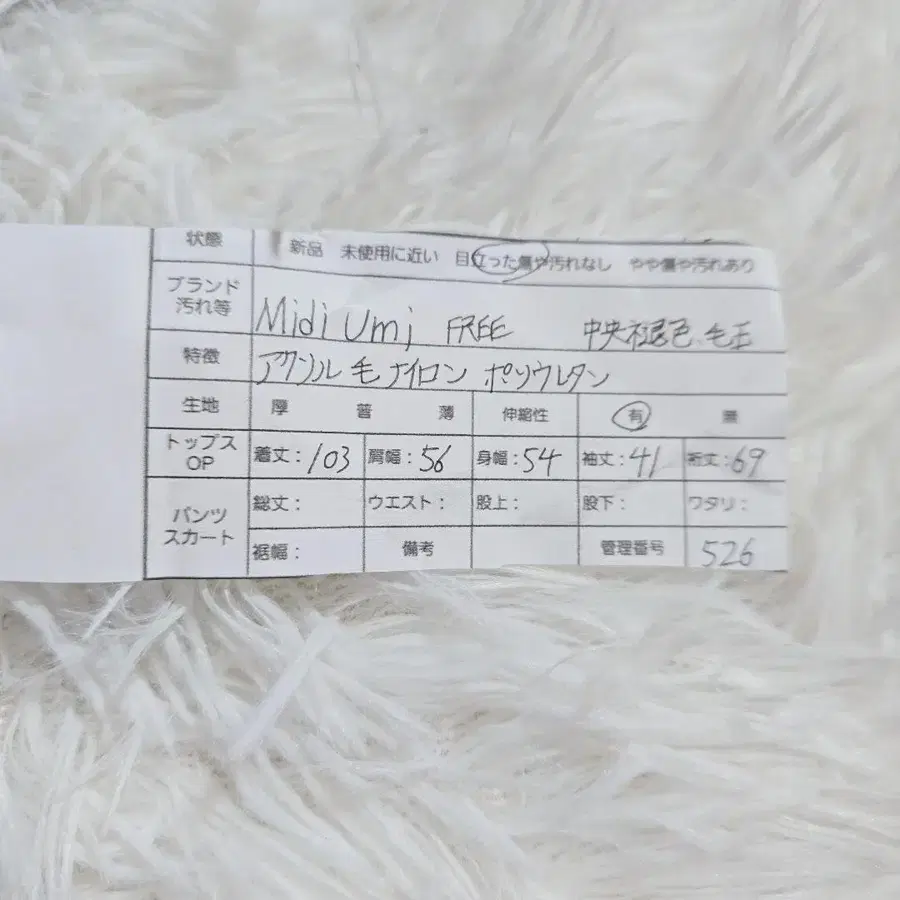 状態 新品 未使用に近い 目立った傷や汚れなし やや傷や汚れあり
ブランド 汚れ等 Midi Umi FREE 中央褪色、毛玉
特徴 アクリル 毛 ナイロン ポリウレタン
生地 厚 普 薄 伸縮性 有 無
トップス OP 着丈:103 肩幅:56 身幅:54 袖丈:41 裄丈:69
パンツ スカート 総丈: ウエスト: 股上: 股下: ワタリ:
裾幅: 備考 管理番号 526